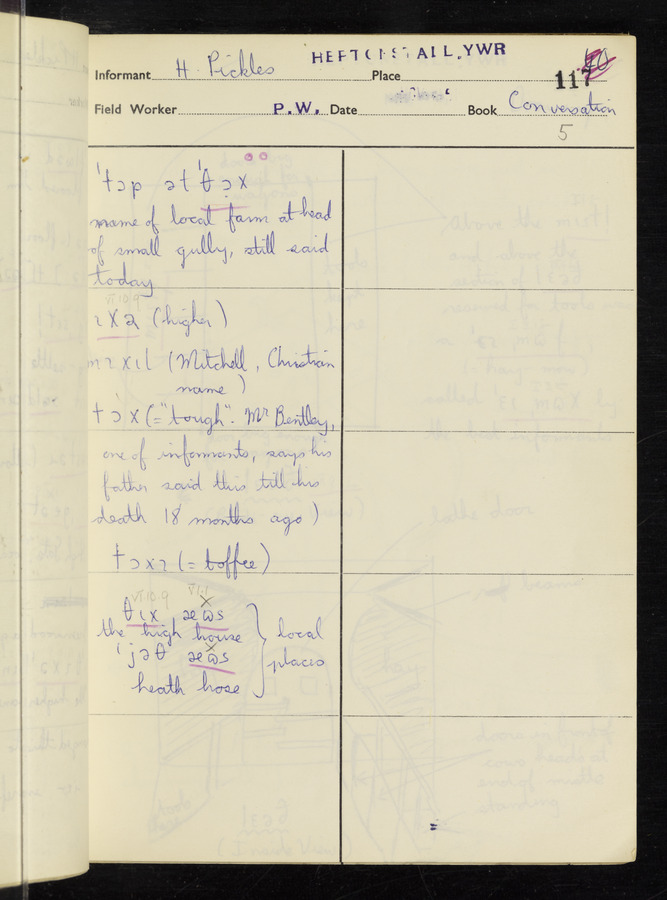 HEPTONSTALL, YWR
Informant H. Pickles Place 117
Field Worker P.W. Date Book Conversation
5
ˈtɔp ət ˈθɔx
name of local farm at head
of small gully, still said
today
VI.10.9
ɪxə (higher)
mɪxɪl (Mitchell, Christian
name)
tɔx (= "tough". Mr Bentley,
one of informants, says his
father said this till his
death 18 months ago)
tɔxɪ (= toffee)
VI.10.9 VI.1
θɪx æʊs
the high house
ˈjəθ æʊs
heath hose
local
places